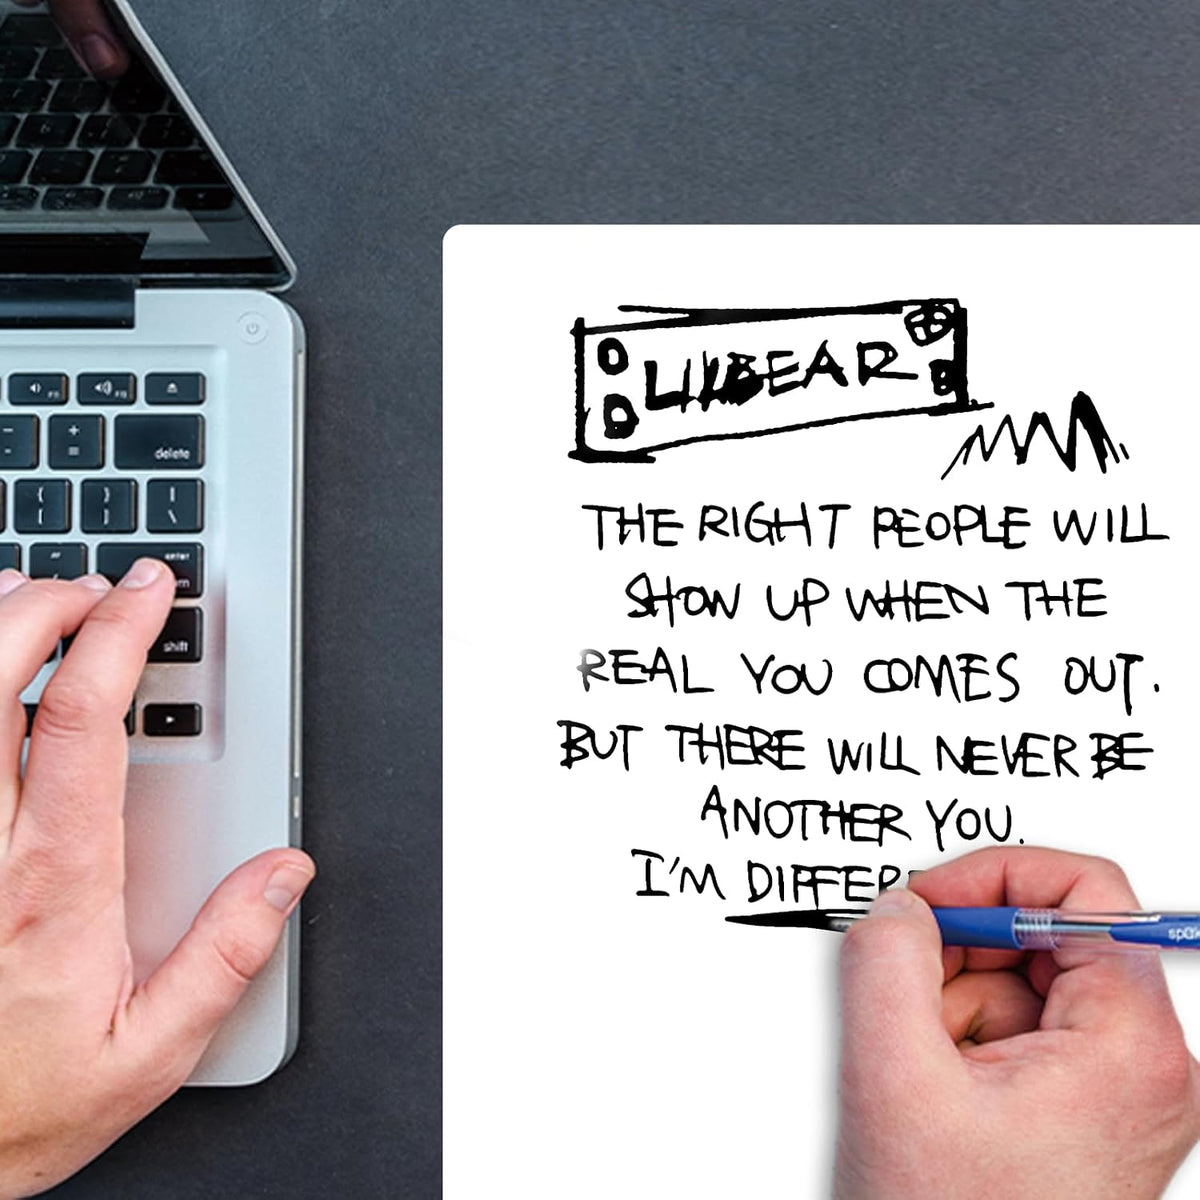 LILBEAR
THE RIGHT PEOPLE WILL
SHOW UP WHEN THE
REAL YOU COMES OUT.
BUT THERE WILL NEVER BE
ANOTHER YOU.
I'M DIFFER
delete
shift